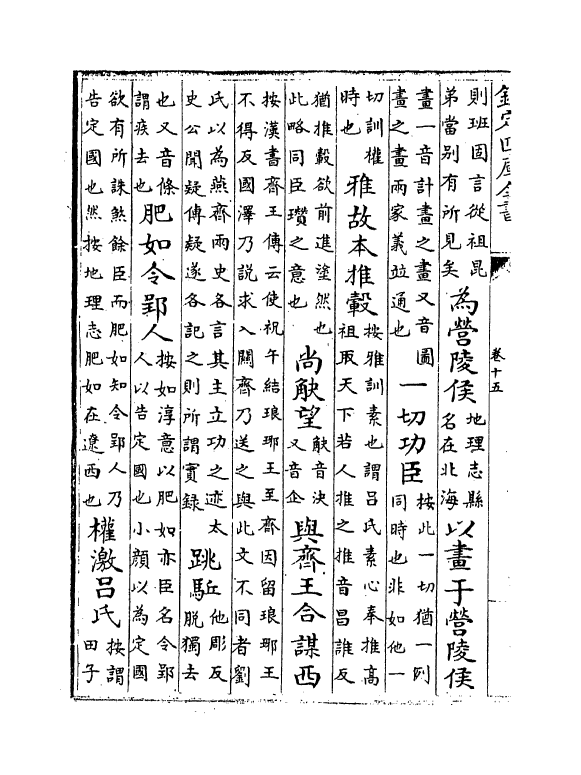 欽定四庫全書
卷十五
則班固言從祖昆
弟當别有所見矣
為營陵侯
地理志縣
名在北海
以畫于營陵侯
畫一音計畫之畫又音圖
畫之畫兩家義並通也
一切功臣
按此一切猶一例
同時也非如他一
切訓權
時也
雅故本推轂
按雅訓素也謂呂氏素心奉推高
祖取天下若人推之推音昌誰反
猶推轂欲前進塗然也
此略同臣瓚之意也
尚觖望
觖音決
又音企
與齊王合謀西
按漢書齊王傳云使祝午結琅邪王至齊因留琅邪王
不得反國澤乃說求入關齊乃送之與此文不同者劉
氏以為燕齊兩史各言其主立功之迹太
史公聞疑傳疑遂各記之則所謂實錄
跳駈
他彫反
脫獨去
也又音條
謂疾去也
肥如令郢人
按如淳意以肥如亦臣名令郢
人以告定國也小顏以為定國
欲有所誅煞餘臣而肥如知令郢人乃
告定國也然按地理志肥如在遼西也
權激呂氏
按謂
田子